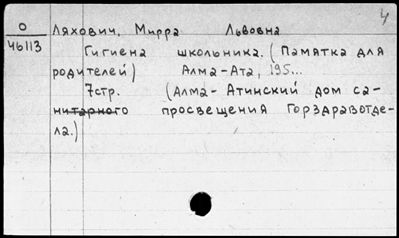 4
О
46113
Ляхович, Мирра Львовна
Гигиена школьника. (Памятка для
родителей) Алма-Ата, 195...
7стр. (Алма-Атинский дом са-
нитарного просвещения Горздравотде-
ла.)